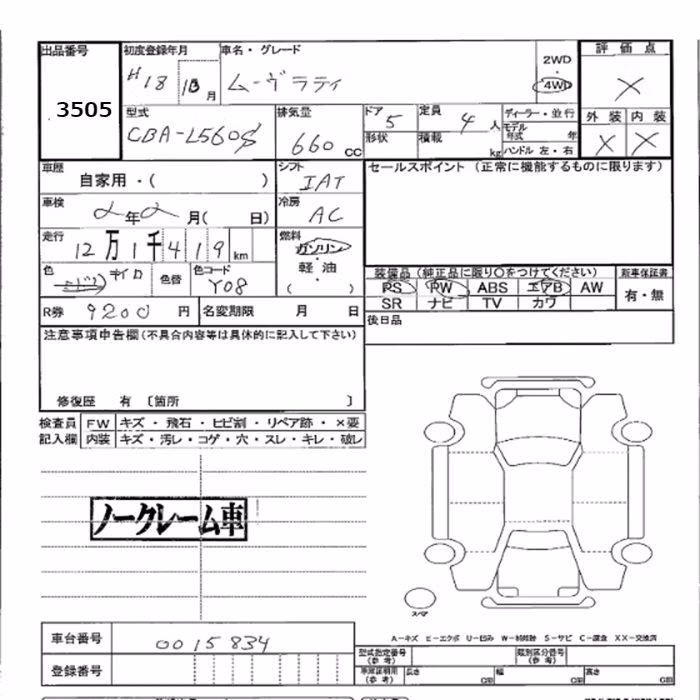 出品番号 3505
初度登録年月 H18 10月
車名・グレード ムーヴラテイ
2WD・4WD
評価点 ×
外装 × 内装 ×
型式 CBA-L560S
排気量 660 CC
ドア 5
形状
定員 4 人
積載 kg
ディーラー・並行
モデル年式 年
ハンドル 左・右
車歴 自家用・( )
シフト IAT
セールスポイント(正常に機能するものに限ります)
車検 2年2月( 日)
冷房 AC
走行 12万1千419km
燃料 ガソリン・軽油・( )
色 キイロ
色替
色コード Y08
装備品(純正品に限り○をつけてください)
新車保証書
PS PW ABS エアB AW
有・無
SR ナビ TV カワ
R券 9200 円
名変期限 月 日
後日品
注意事項申告欄(不具合内容等は具体的に記入して下さい)
修復歴 有 〔箇所 〕
検査員記入欄
FW キズ・飛石・ヒビ割・リペア跡・×要
内装 キズ・汚レ・コゲ・穴・スレ・キレ・破レ
ノークレーム車
スペア
A-キズ E-エクボ U-凹み W-補修跡 S-サビ C-腐食 XX-交換済
車台番号 0015834
登録番号
型式指定番号(参考)
類別区分番号(参考)
長さ cm 幅 cm 高さ cm